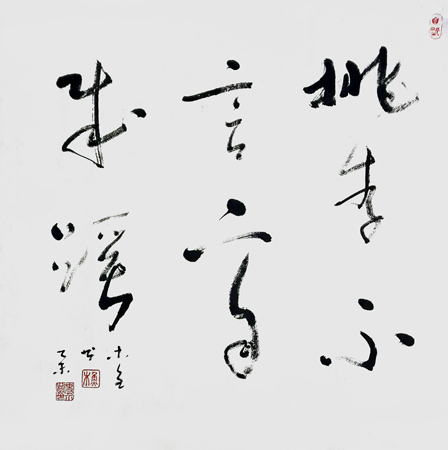 桃李不
言下自
成蹊